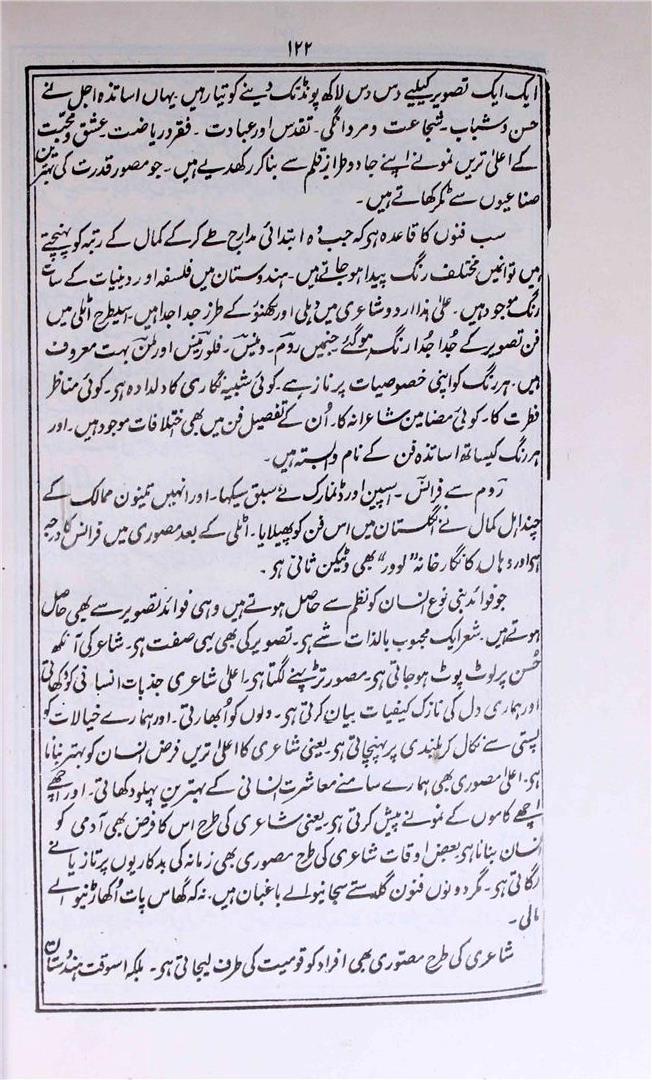 ۱۲۲
ایک ایک تصویر کیلیے دس دس لاکھ پونڈ تک دینے کو تیار ہیں۔ یہاں اساتذہ اجل نے
حسن و شباب۔ شجاعت و مردانگی۔ تقدس اور عبادت۔ فقر و ریاضت عشق و محبت
کے اعلیٰ تریں نمونے اپنے جادو طراز قلم سے بنا کر رکھدیے ہیں۔ جو مصور قدرت کی بہترین
صناعیوں سے ٹکر کھاتے ہیں۔
سب فنوں کا قاعدہ ہی کہ جب وہ ابتدائی مدارج طے کرکے کمال کے رتبہ کو پہنچتے
ہیں تو انمیں مختلف رنگ پیدا ہو جاتے ہیں۔ ہندوستان میں فلسفہ اور دینیات کے سات
رنگ موجود ہیں۔ علیٰ ہذا اردو شاعری میں دہلی اور لکھنؤ کے طرز جدا جدا ہیں۔ اسیطرح اٹلی میں
فن تصویر کے جُدا جُدا رنگ ہو گئے جنمیں روم۔ ونیس۔ فلورینس اور ملن بہت معروف
ہیں۔ ہر رنگ کو اپنی خصوصیات پر ناز ہے۔ کوئی شبیہ نگاری کا دلدادہ ہی۔ کوئی مناظر
فطرت کا۔ کوئی مضامین شاعرانہ کا۔ اُن کے تفصیل فن میں بھی اختلافات موجود ہیں۔ اور
ہر رنگ کیساتھ اساتذہ فن کے نام وابستہ ہیں۔
روم سے فرانس۔ اسپین اور ڈنمارک نے سبق سیکھا۔ اور انہیں تینوں ممالک کے
چند اہل کمال نے انگلستان میں اس فن کو پھیلایا۔ اٹلی کے بعد مصوری میں فرانس کا درجہ
ہی اور وہاں کا نگار خانہ ”لوور“ بھی وٹیکن ثانی ہی۔
جو فوائد بنی نوع انسان کو نظم سے حاصل ہوتے ہیں وہی فوائد تصویر سے بھی حاصل
ہوتے ہیں۔ شعر ایک محبوب بالذات شے ہی۔ تصویر کی بھی یہی صفت ہی۔ شاعر کی آنکھ
حُسن پر لوٹ پوٹ ہو جاتی ہی۔ مصور تڑپنے لگتا ہی۔ اعلیٰ شاعری جذبات انسانی کو دکھاتی
اور ہماری دل کی نازک کیفیات بیان کرتی ہی۔ دلوں کو اُبھارتی۔ اور ہمارے خیالات کو
پستی سے نکال کر بلندی پر پہنچاتی ہی یعنی شاعری کا اعلیٰ تریں فرض انسان کو بہتر بنانا
ہی۔ اعلیٰ مصوری بھی ہمارے سامنے معاشرت انسانی کے بہترین پہلو دکھاتی۔ اور اچھے
اچھے کاموں کے نمونے پیش کرتی ہی یعنی شاعری کی طرح اس کا فرض بھی آدمی کو
انسان بنانا ہی بعض اوقات شاعری کی طرح مصوری بھی زمانہ کی بدکاریوں پر تازیانے
لگاتی ہی۔ مگر دونوں فنون گلدستے سجانیوالے باغبان ہیں۔ نہ کہ گھاس پات اُکھاڑنیوالے
مالی۔
شاعری کی طرح مصوری بھی افراد کو قومیت کی طرف لیجاتی ہی۔ بلکہ اسوقت ہندوستان